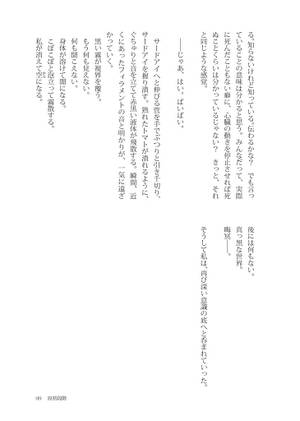 る。知らないけれど知っている。伝わるかな？　でも言っ
ていることの意味は分かると思う。みんなだって、実際
に死んだこともない癖に、心臓の動きを停止させれば死
ぬことくらいは分かっているじゃない？　きっと、それ
と同じような感覚。
――じゃあ、はい。ばいばい。
サードアイへと伸びる管を手でぶつりと引き千切り、
サードアイを握り潰す。熟れたトマトが潰れるように、
ぐちゅりと音を立てて赤黒い液体が飛散する。瞬間、近
くにあったフィラメントの音と明かりが、一気に遠ざ
かっていく。
黒い霧が視界を覆う。
もう何も見えない。
何も聞こえない。
身体が溶けて闇になる。
こぽこぽと泡立って霧散する。
私が消えて空になる。
後には何もない。
真っ黒な世界。
晦冥――。
そうして私は、再び深い意識の底へと呑まれていった。